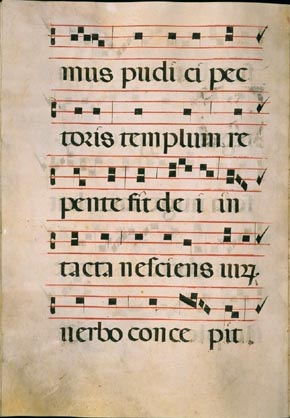 mus pudi ci pec
toris templum re
pente fit de i in
tacta nesciens uiꝝ
uerbo conce pit